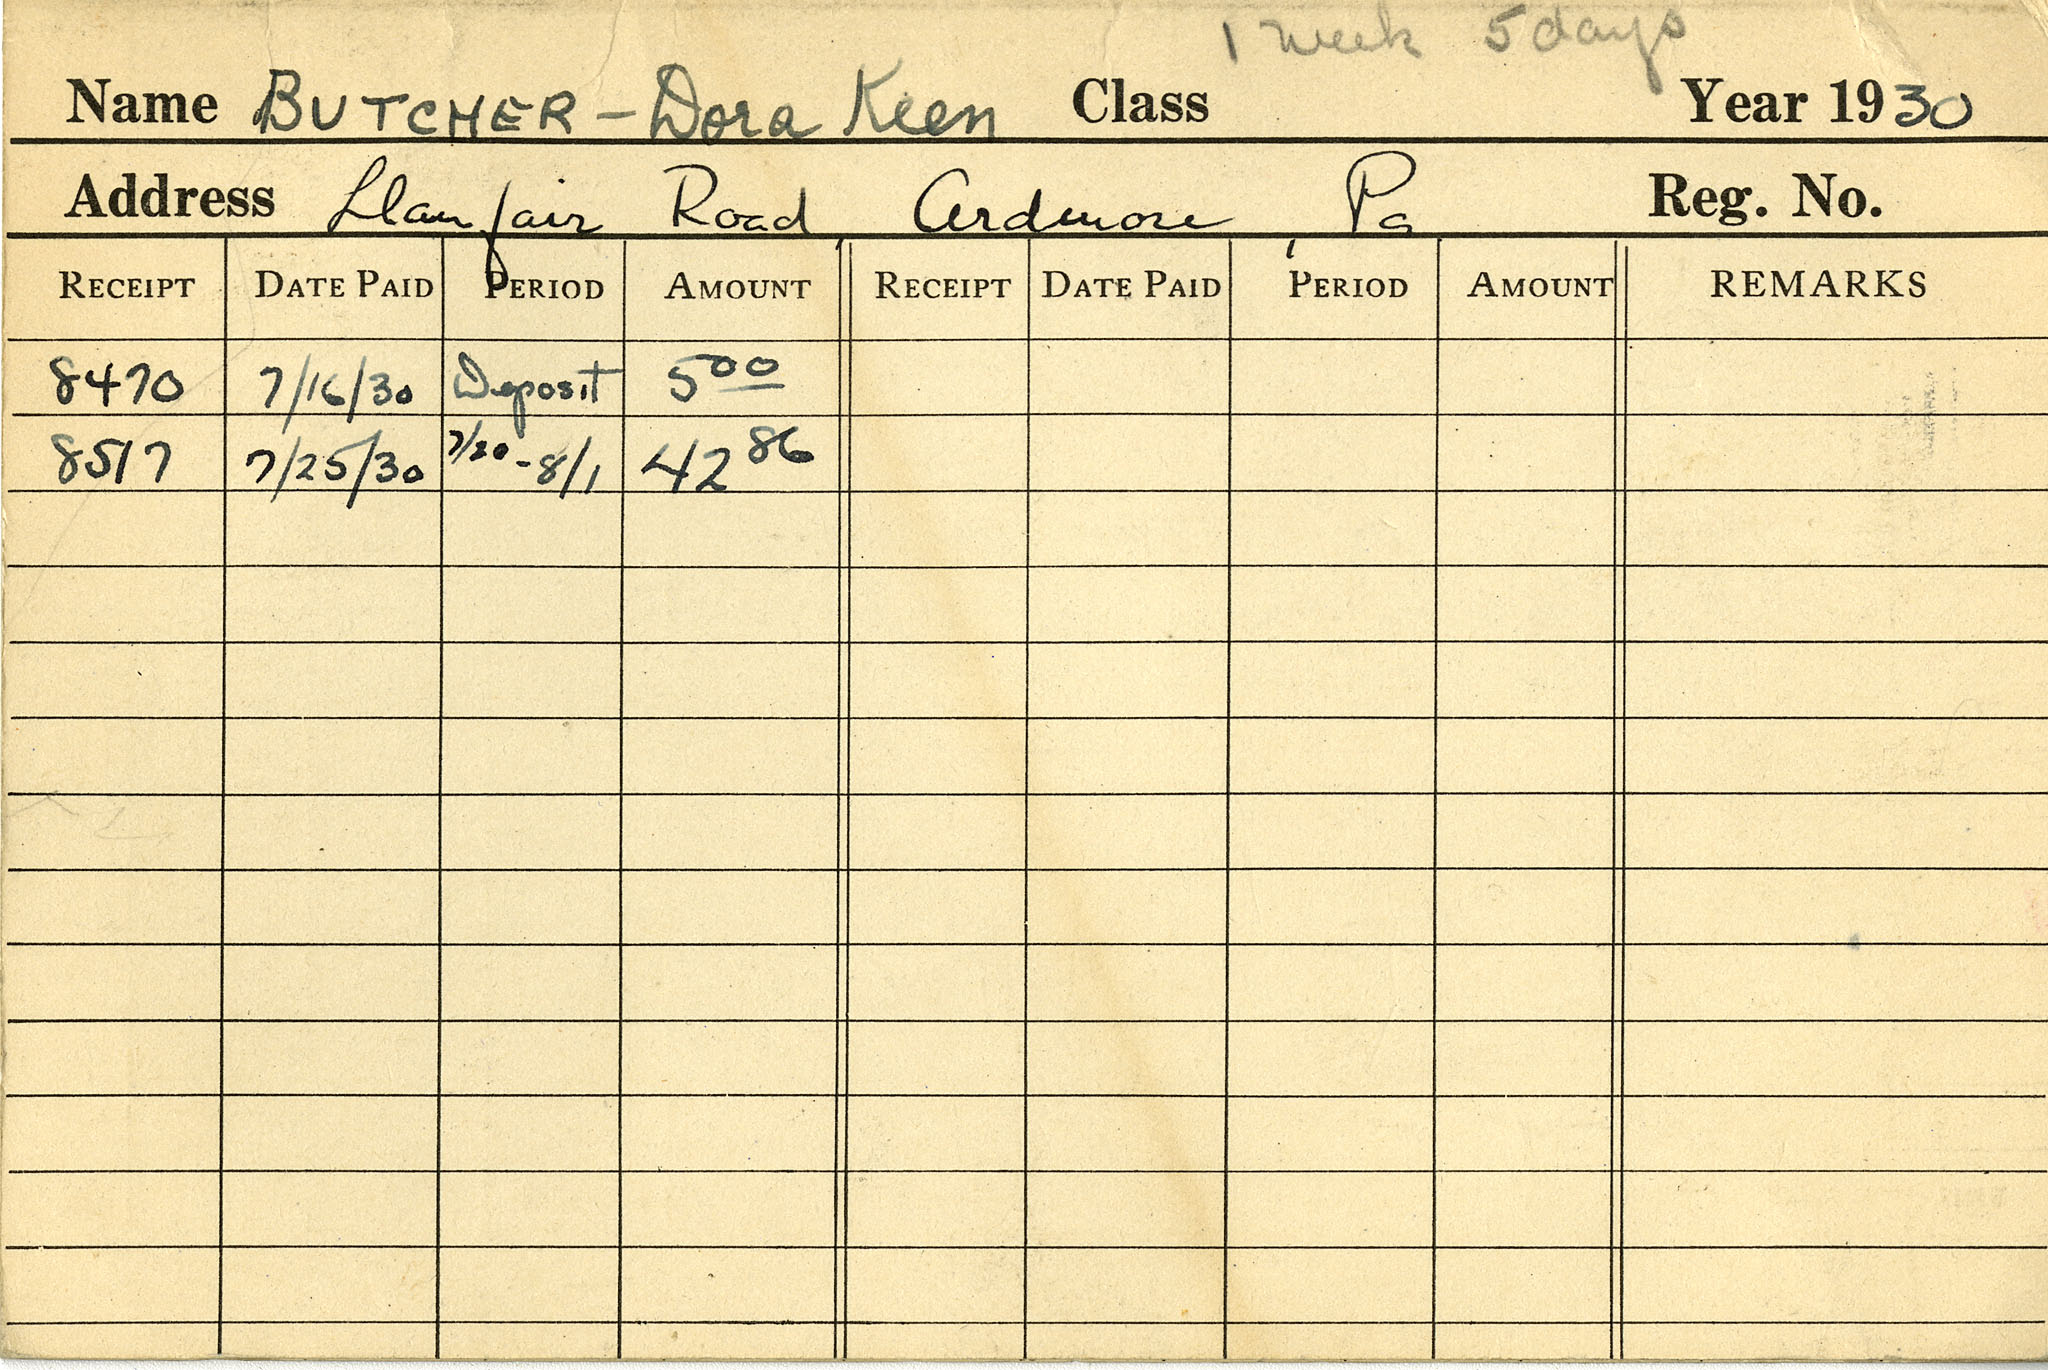 1 week 5 days
Name BUTCHER - Dora Keen Class Year 1930
Address Llanfair Road Ardmore, Pa Reg. No.
RECEIPT DATE PAID PERIOD AMOUNT RECEIPT DATE PAID PERIOD AMOUNT REMARKS
8470 7/16/30 Deposit 5 00
8517 7/25/30 7/20 - 8/1 42 86